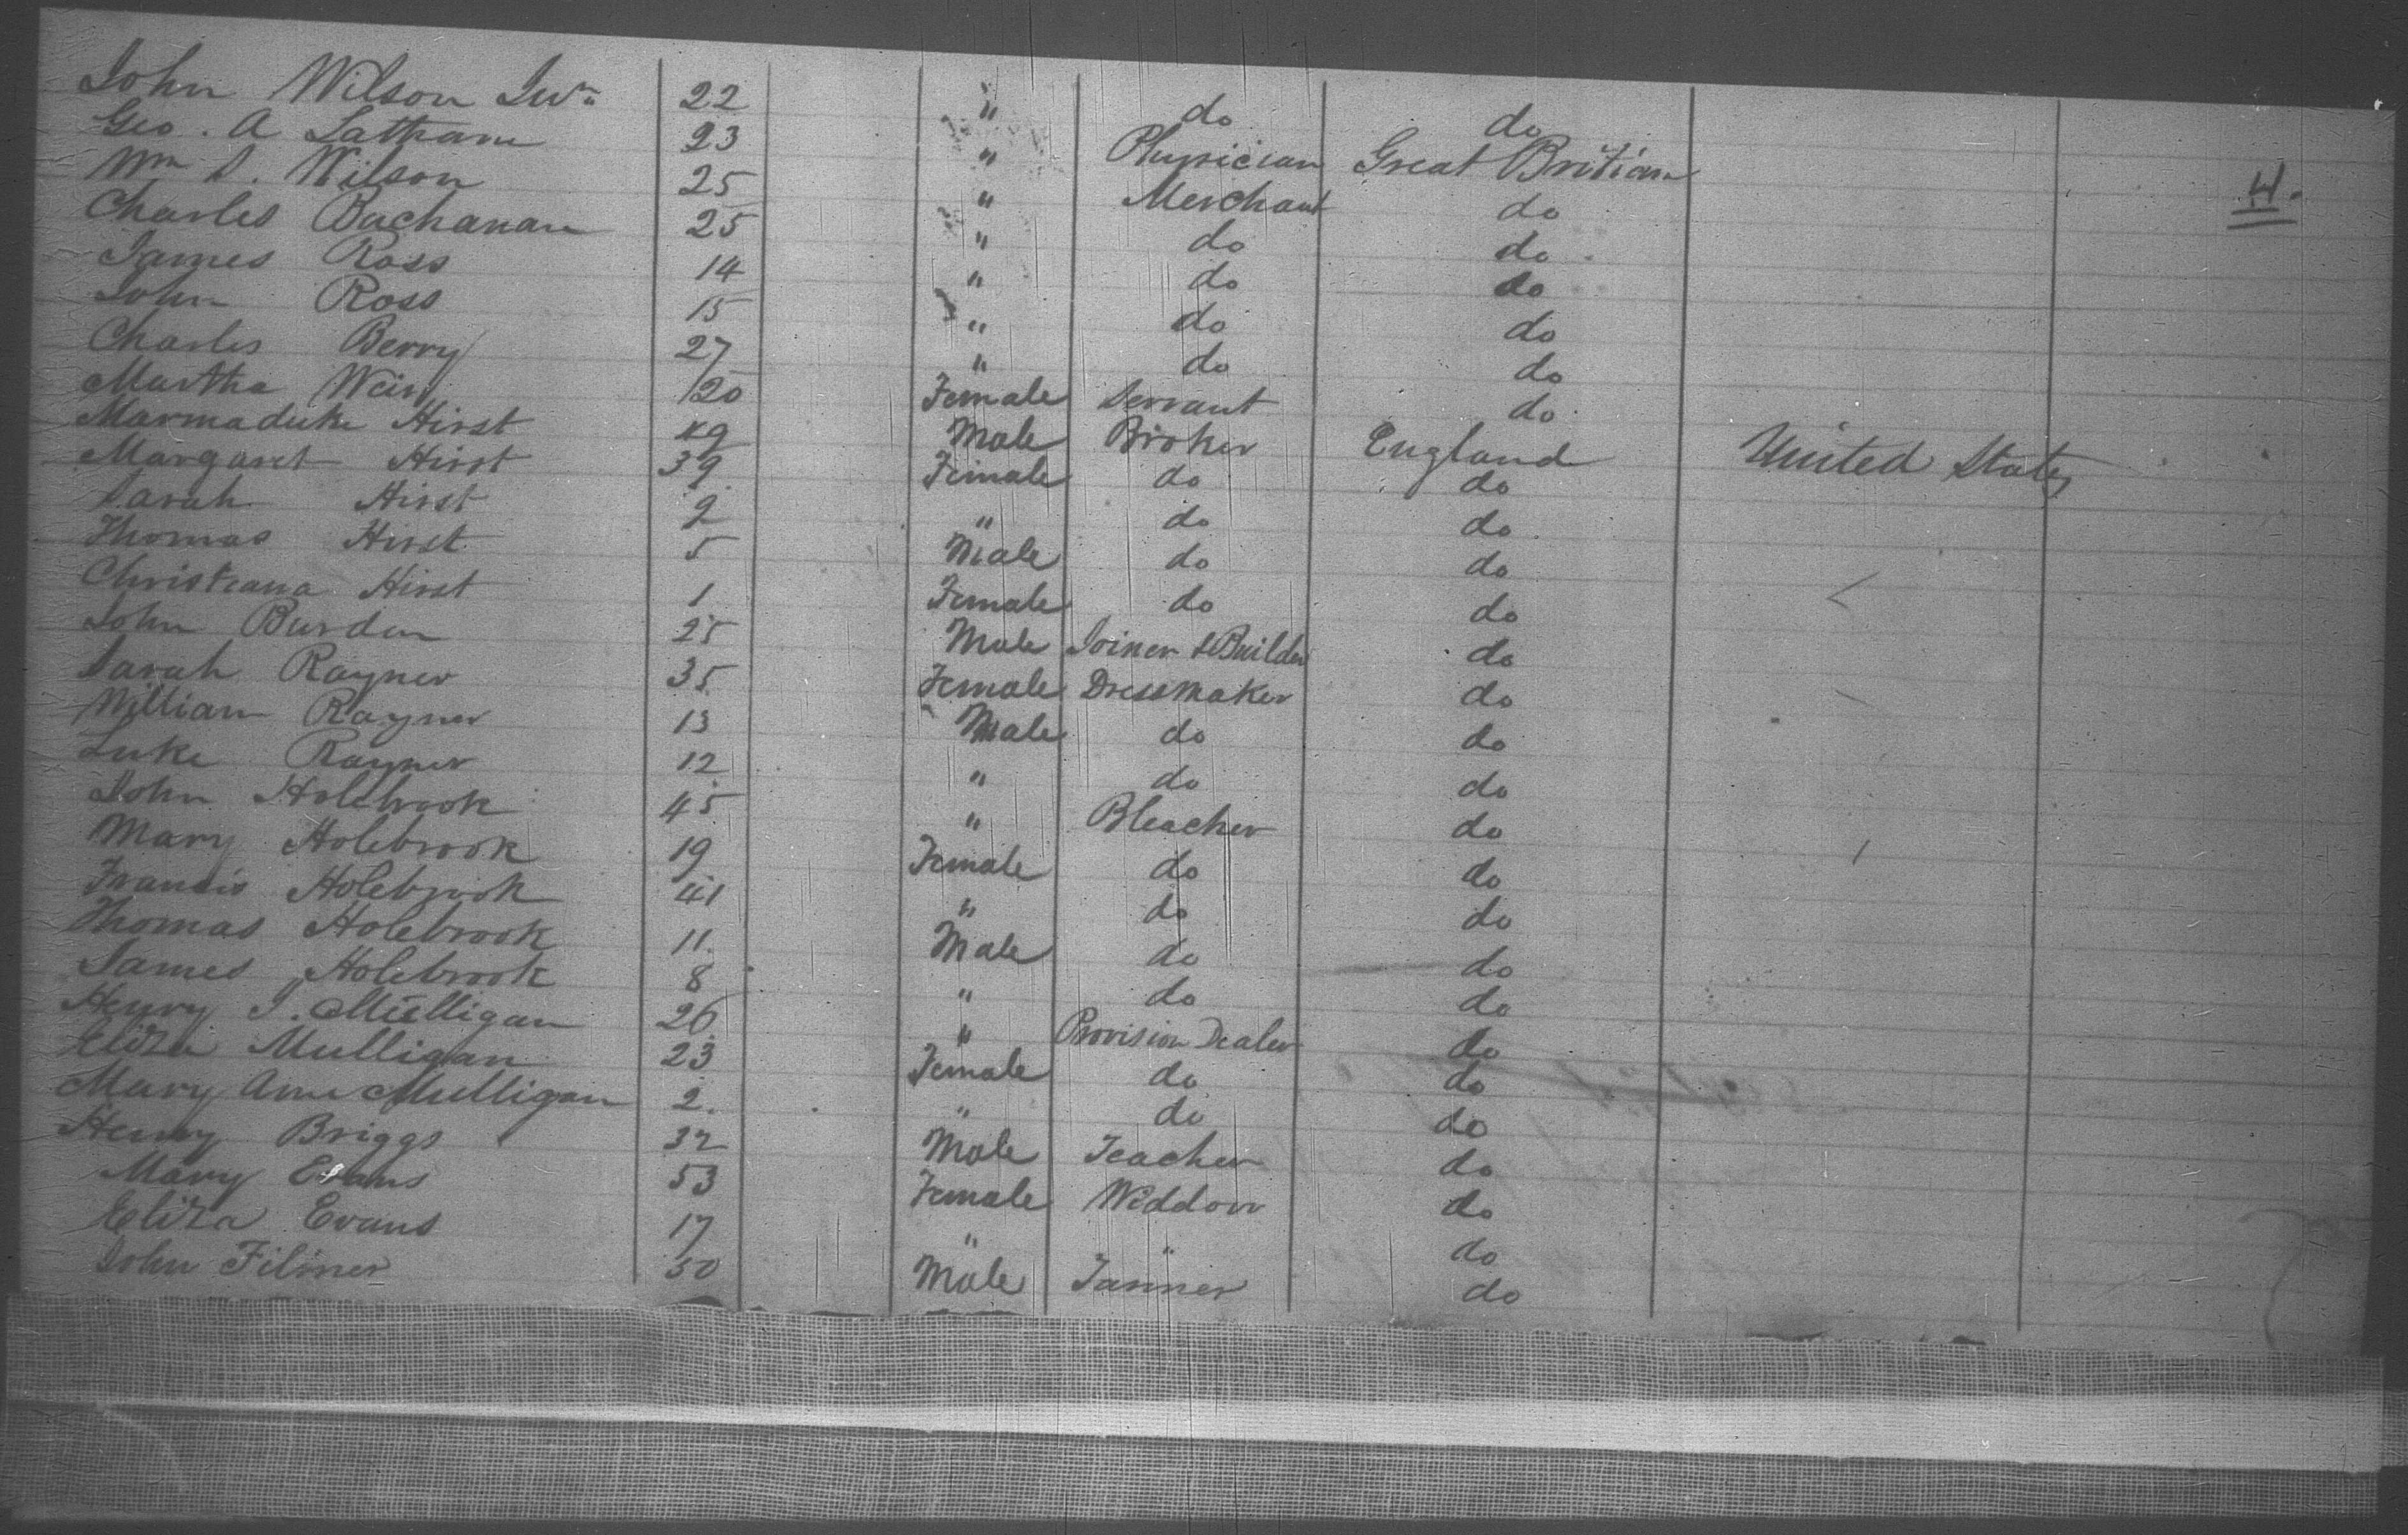 John Wilson Junr 22 " do do
Geo. A Latham 23 " Physician Great Britian
Wm S. Wilson 25 " Merchant do 4.
Charles Buchanan 25 " do do
James Ross 14 " do do
John Ross 15 " do do
Charles Berry 27 " do do
Martha Weir 20 Female Servant do
Marmaduke Hirst 49 Male Broker England United States
Margaret Hirst 39 Female do do
Sarah Hirst 9 " do do
Thomas Hirst 5 Male do do
Christiana Hirst 1 Female do do
John Burdon 25 Male Joiner & Builder do
Sarah Rayner 35 Female Dressmaker do
William Rayner 13 Male do do
Luke Rayner 12 " do do
John Holebrook 45 " Bleacher do
Mary Holebrook 19 Female do do
Francis Holebrook 41 " do do
Thomas Holebrook 11 Male do do
James Holebrook 8 " do do
Henry J. Mulligan 26 " Provision Dealer do
Eliza Mulligan 23 Female do do
Mary Ann Mulligan 2. " do do
Henry Briggs 32 Male Teacher do
Mary Evans 53 Female Widdow do
Eliza Evans 17 " " do
John Filmer 50 Male Tanner do